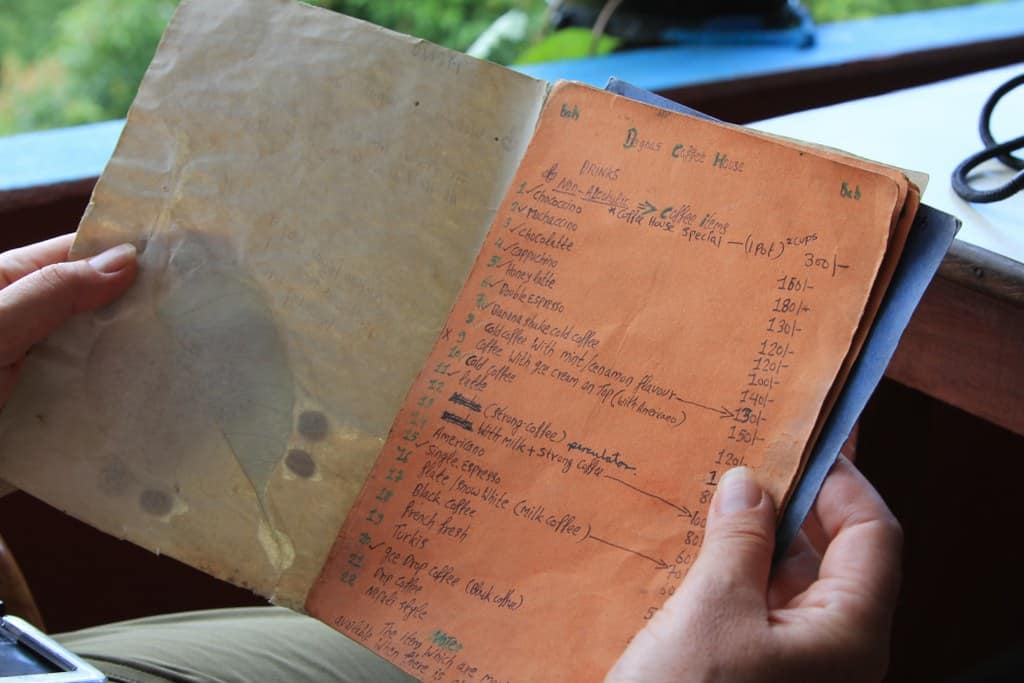 Coffee House
DRINKS
Non-Alcoholic ⇒ Coffee items
* Coffee House special — (1 Pot) 2 cups 300/-
1 ✓ chococcino 150/-
2 ✓ Mochaccino 180/-
3 ✓ chocolatte 130/-
4 ✓ cappuchino 120/-
5 ✓ Honey latte 120/-
6 ✓ Double Espresso 100/-
7 ✓ Banana shake cold coffee 140/-
8 cold coffee with mint/cenamon flavour 130/-
x 9 coffee with ice cream on Top (with Americano) 150/-
10 ✓ cold coffee 120/-
11 ✓ latte
12 (strong-coffee) perculator
13 with milk + strong coffee 100
14 Americano 80
15 ✓ Single Espresso 60
16 Plate/snow white (milk coffee) 70
17 Black coffee
18 French fresh
19 Turkis
20 ✓ ice Drop coffee (Black coffee)
21 Drop coffee
22 Nepali style
Note:
The item which are
available when there is